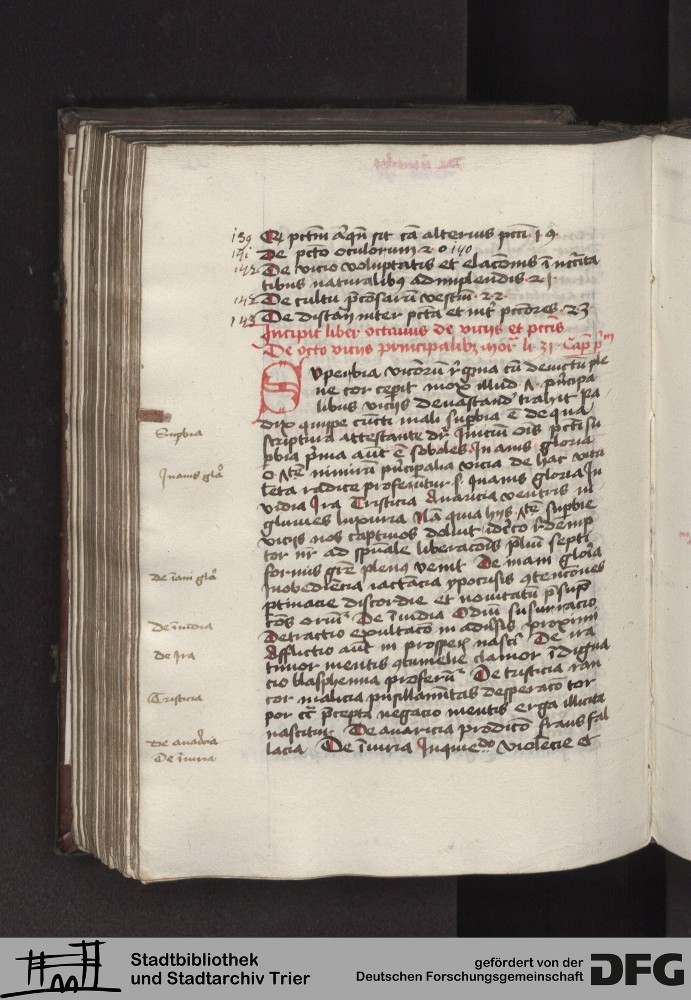 139 Qr pctm aliqn sit cā alterius pcti 19
141 De pcto oculorum 20 140
142 De vicio voluptatis et elacōnis ī nccita
tibus naturalibȝ adimplendis 21
142 De cultu p̄cōsarū vestiu 22
143 De distan inter pctā et int' pctores 23
Incipit liber octavus de viciis et pctis
De octo viciis principalibȝ mor li 31 Cap pm
Superbia vicōrū rgīna cū devictū ple
ne cor ceperit mox illud principa
libus viciis devastand' trahit Ra
dix quippe cūcti mali suꝑbia ē de qua
scriptura attestante dr Inicium ois pcti su
ꝑbia pma aut ē soboles Inanis gloria
nimirū pncipalia vicia de hac viru
lēta radice proferūtur s Inanis gloria In
vidia Ira Tristicia Avaricia ventris in
gluvies luxuria Nā quia hiis suꝑbie
viciis nos captivos doluit idcirco rdemp
tor nr ad spūale liberacōis prliū septi
formis grē plenus venit De inani gloria
Inobediēcia iactācia ypocrisis 9tencōnes
ꝑtinacie discordie et novitatū psūp
cōs oriūr De īvidia Odiū susurracio
Detractio exultacō in adu'sis proximi
Afflictio aūt in prosperis nasci' De ira
timor mentis 9tumelie clamor īdigna
cio blasphemia proferūr De tristicia ran
cor malicia pusillanimitas desperacō tor
por cc' p̄cepta vagacio mentis erga illicita
nascitur De avaricia prodicō fraus fal
lacia De īiuria Inquiedo violēcie et
Supbia
Inanis gla
De īani gla
De īvidia
De Ira
Tristicia
De avaricia
De īiuria
Stadtbibliothek
und Stadtarchiv Trier
gefördert von der
Deutschen Forschungsgemeinschaft
DFG